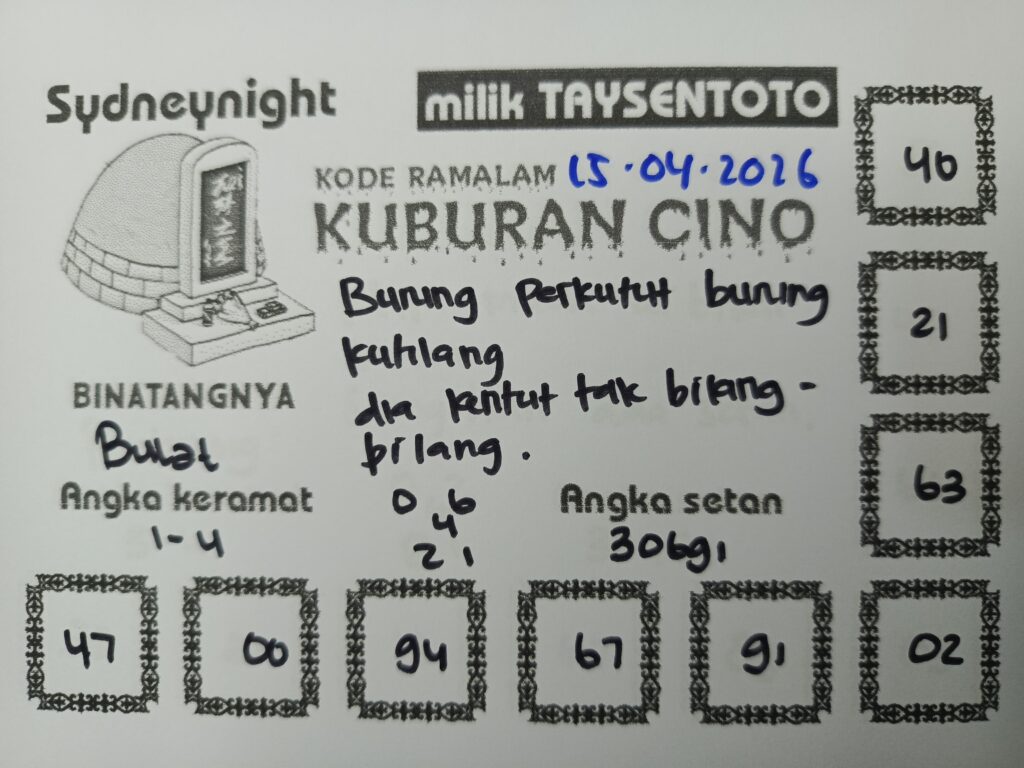 Sydneynight
milik TAYSENTOTO
KODE RAMALAM 15.04.2026
KUBURAN CINO
Burung perkutut burung
kutilang
dia kentut tak bilang-
bilang.
BINATANGNYA
Bulat
Angka keramat
1-4
0 6
4
21
Angka setan
30691
40
21
63
47
00
94
67
91
02